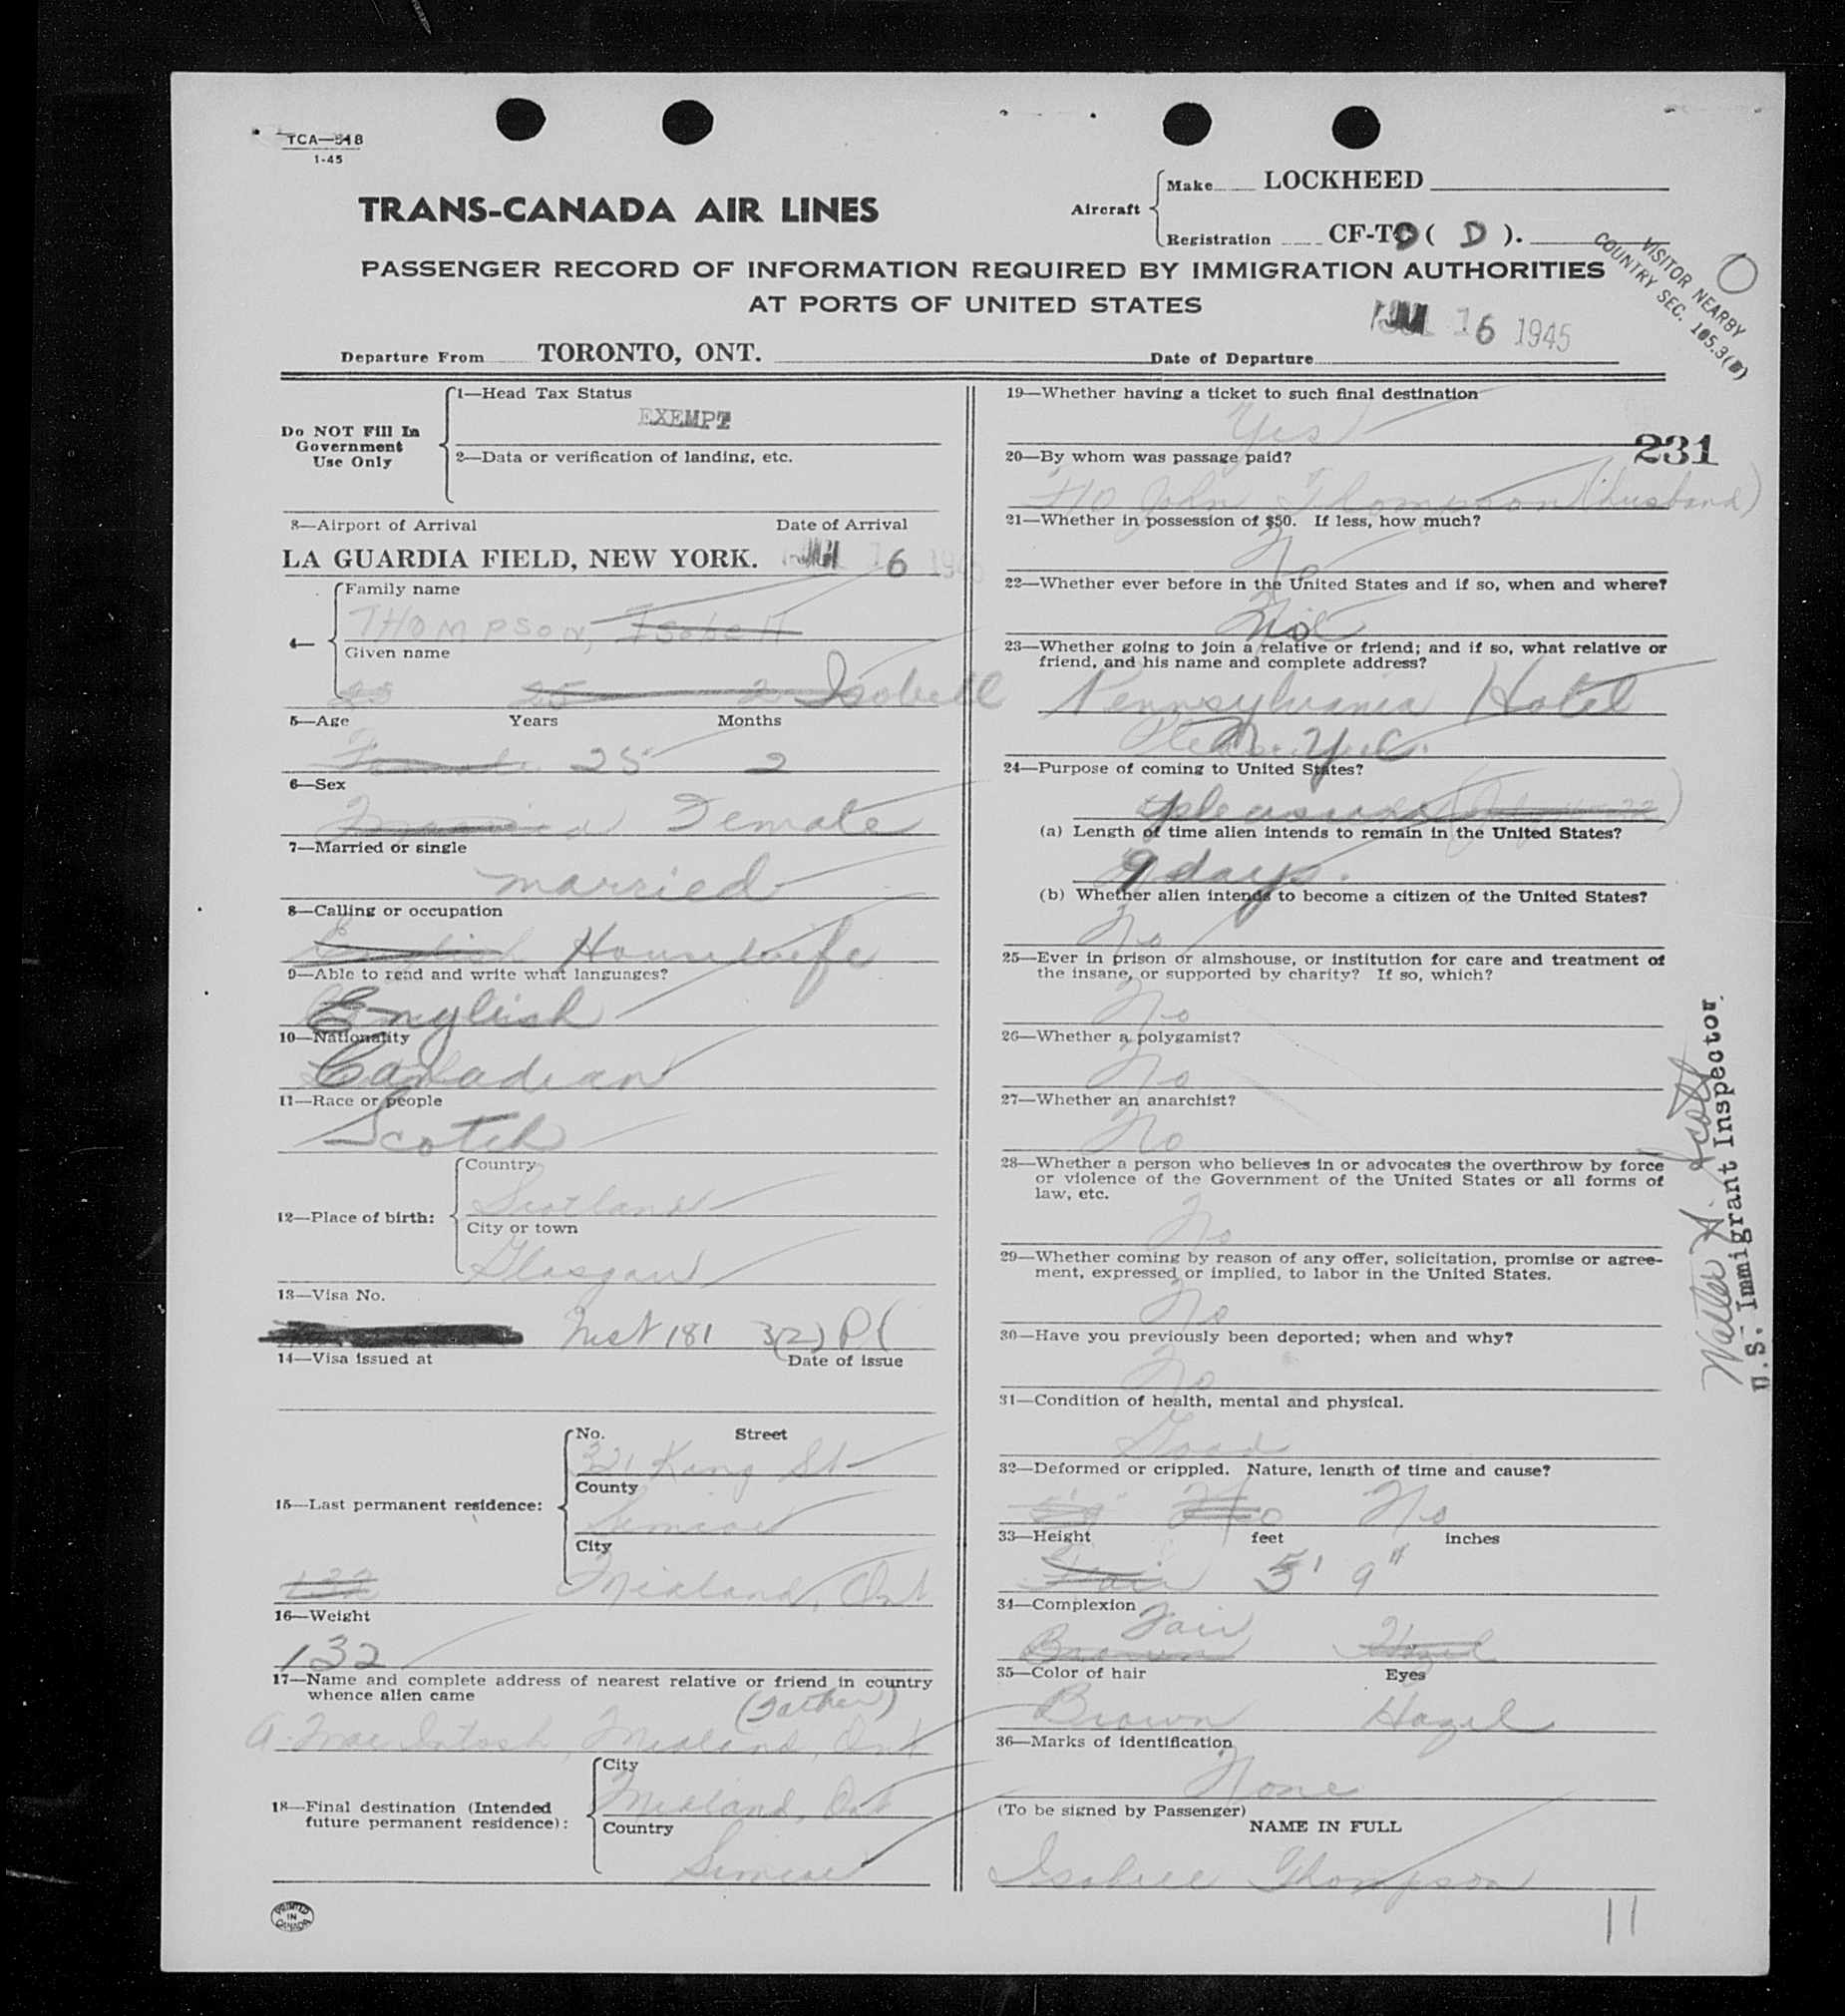 TCA—518
1-45
TRANS-CANADA AIR LINES
Aircraft
Make LOCKHEED
Registration CF-TC ( D ).
PASSENGER RECORD OF INFORMATION REQUIRED BY IMMIGRATION AUTHORITIES
AT PORTS OF UNITED STATES
VISITOR NEARBY
COUNTRY SEC. 105.3(B)
JUL 16 1945
Departure From TORONTO, ONT.
Date of Departure
Do NOT Fill In
Government
Use Only
1—Head Tax Status
EXEMPT
2—Data or verification of landing, etc.
3—Airport of Arrival Date of Arrival
LA GUARDIA FIELD, NEW YORK. JUL 16 1945
4—
Family name
THOMPSON, Isobell
Given name
25 2 Isobell
5—Age Years Months
Female 25 2
6—Sex
Married Female
7—Married or single
married
8—Calling or occupation
English Housewife
9—Able to read and write what languages?
English
10—Nationality
Canadian
11—Race or people
Scotch
12—Place of birth:
Country
Scotland
City or town
Glasgow
13—Visa No.
181 3(2)
14—Visa issued at Date of issue
15—Last permanent residence:
No. Street
321 King St
County
Simcoe
City
132 Midland, Ont
16—Weight
132
17—Name and complete address of nearest relative or friend in country
whence alien came
(Father)
A. MacIntosh, Midland, Ont
18—Final destination (Intended
future permanent residence):
City
Midland, Ont
Country
Simcoe
PRINTED
IN
CANADA
19—Whether having a ticket to such final destination
Yes
231
20—By whom was passage paid?
F/O John Thompson (husband)
21—Whether in possession of $50. If less, how much?
No
22—Whether ever before in the United States and if so, when and where?
No
23—Whether going to join a relative or friend; and if so, what relative or
friend, and his name and complete address?
Pennsylvania Hotel
N.Y.C.
24—Purpose of coming to United States?
pleasure
(a) Length of time alien intends to remain in the United States?
9 days.
(b) Whether alien intends to become a citizen of the United States?
No
25—Ever in prison or almshouse, or institution for care and treatment of
the insane, or supported by charity? If so, which?
No
26—Whether a polygamist?
No
27—Whether an anarchist?
No
28—Whether a person who believes in or advocates the overthrow by force
or violence of the Government of the United States or all forms of
law, etc.
No
29—Whether coming by reason of any offer, solicitation, promise or agree-
ment, expressed or implied, to labor in the United States.
No
30—Have you previously been deported; when and why?
No
31—Condition of health, mental and physical.
Good
32—Deformed or crippled. Nature, length of time and cause?
No
33—Height feet inches
Fair 5' 9"
34—Complexion
Fair
Brown Hazel
35—Color of hair Eyes
Brown Hazel
36—Marks of identification
None
(To be signed by Passenger)
NAME IN FULL
Isobell Thompson
11
Walter A. Scott
U.S. Immigrant Inspector.